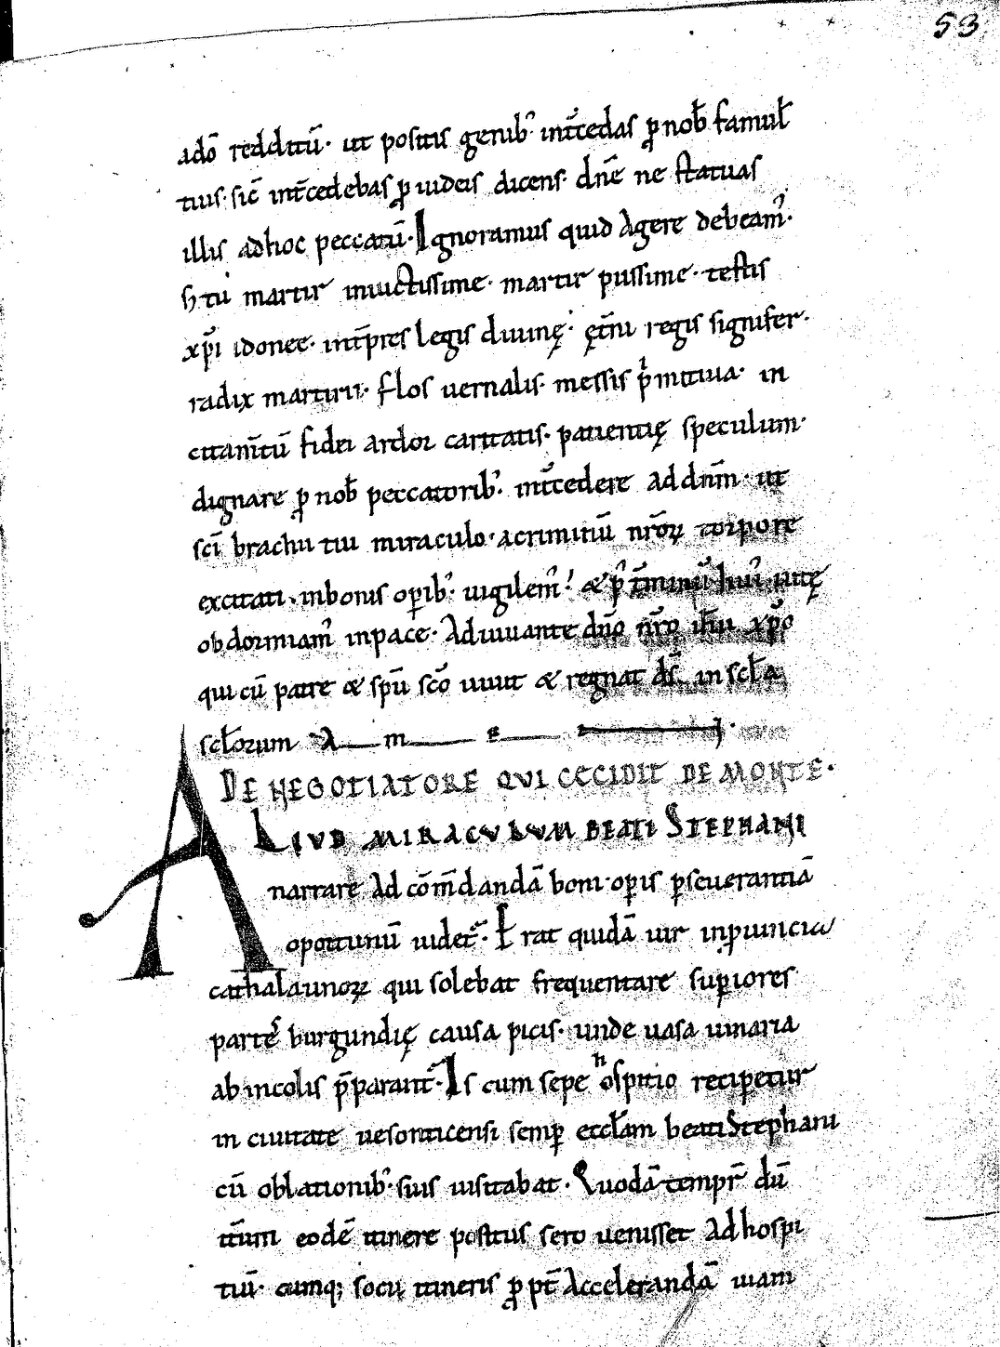 53
adō redditū· ut positis genib; int̄cedas ꝑ nob̄ famul̄
tuis· sic̄ int̄cedebas ꝑ iudeis dicens· dn̄e ne statuas
illis adhoc peccatū· Ignoramus quid Agere debeam᾽·
s; tu martir inuictissime· martir piissime· testis
xp̄i idonee· int̄pres legis diuinę· ęt̄ni regis signifer·
radix martirii· flos uernalis· messis p̄mitiua· in
citam̄tū fidei ardor caritatis· patientię speculum·
dignare ꝑ nob̄ peccatorib; int̄cedere ad dn̄m· ut
sc̄i brachii tui miraculo· acriminū nr̄oꝝ torpore
excitati· inbonis oꝑib; uigilem᾽· & p᾽ t̄minū hui᾽ uitę
obdormiam᾽ inpace· Adiuuante dn̄o nr̄o ih̄u xp̄o
qui cū patre & spū sc̄o uiuit & regnat ds̄ in scl̄a
scl̄orum A m e
DE NEGOTIATORE QVI CECIDIT DE MONTE·
ALIVD MIRACVLVM BEATI STEPHANI
narrare Ad cōm̄dandā boni oꝑis ꝑseuerantiā
oportunū uidet᾽· Erat quidā uir inꝓuincia
cathalaunoꝝ qui solebat frequentare suꝑiores
parte᾽ burgundię causa picis· unde uasa uinaria
ab incolis p̄parant᾽· Is cum sepe hospitio reciperetur
in ciuitate uesonticensi semꝑ eccl̄am beati Stephani
cū oblationib; suis uisitabat· Quodā tempr̄ dū
it̄um eodē itinere positus sero uenisset Ad hospi
tiū· cumq; socii itineris ꝓpt̄ Accelerandā uiam